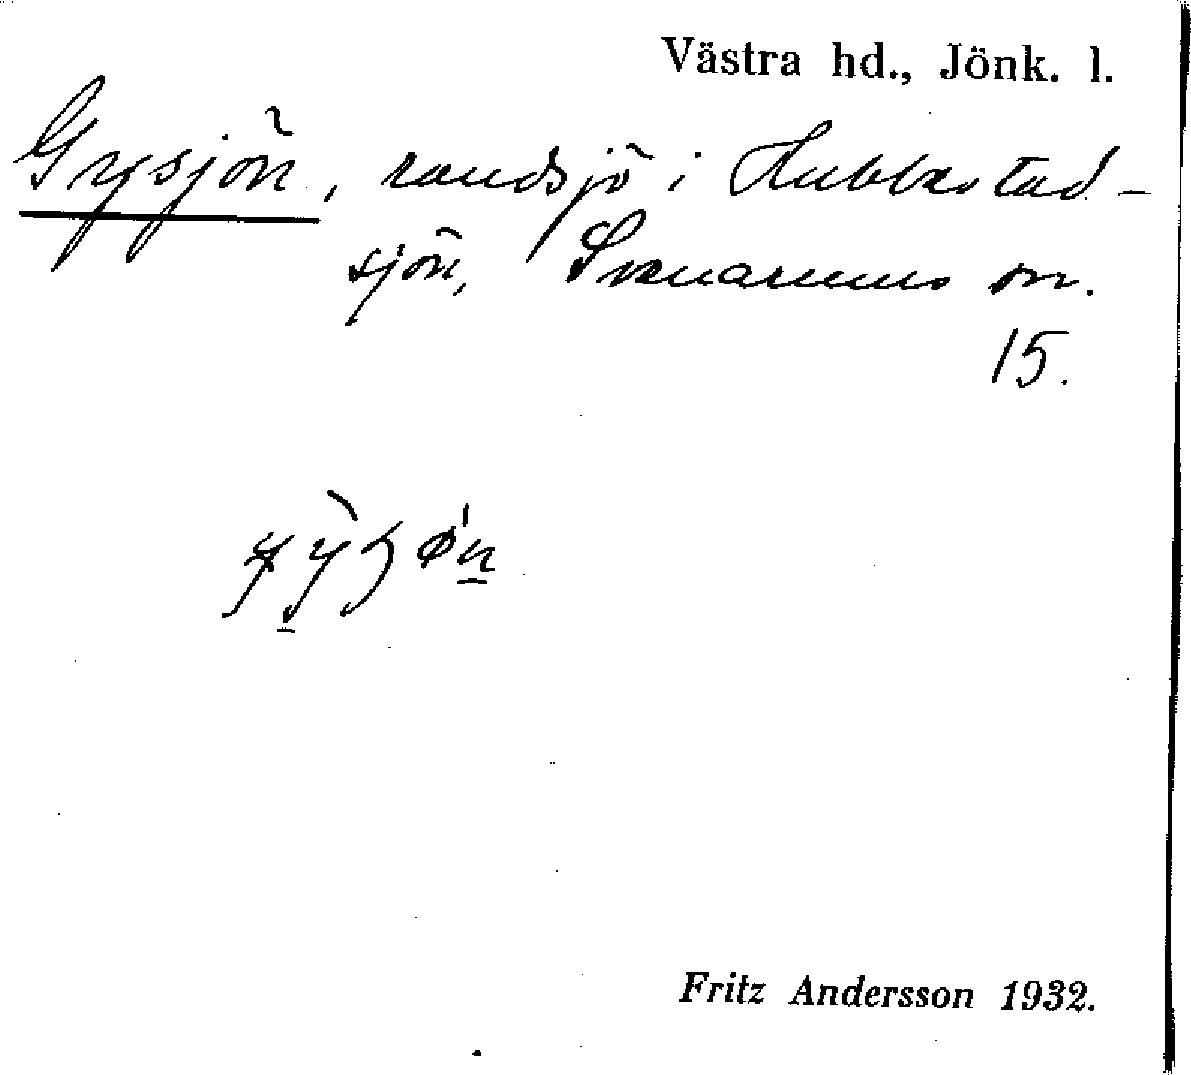 Västra hd., Jönk. l.
Gysjön, randsjö i Hubbestad-
sjön, Svenarums sn.
15.
Fritz Andersson 1932.